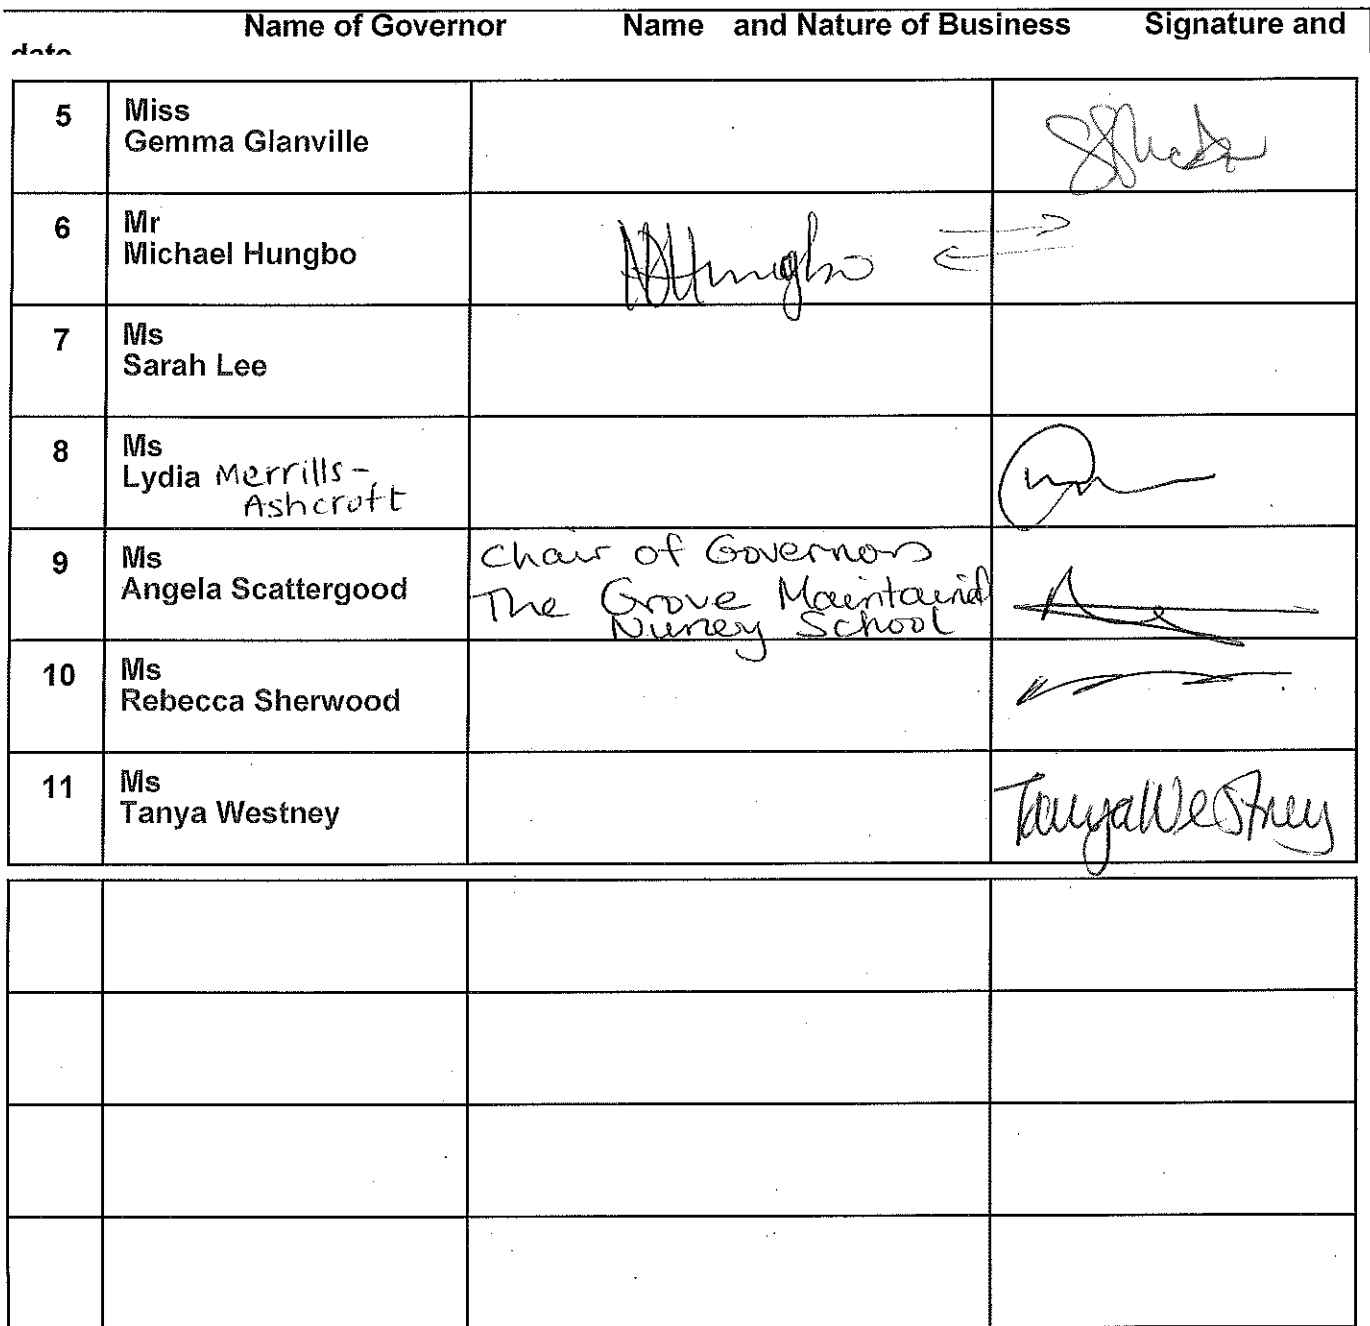 Name of Governor Name and Nature of Business Signature and
date
5 Miss
Gemma Glanville
6 Mr
Michael Hungbo MHungbo
7 Ms
Sarah Lee
8 Ms
Lydia Merrills-
Ashcroft
9 Ms
Angela Scattergood
Chair of Governors
The Grove Maintained
Nursery School
10 Ms
Rebecca Sherwood
11 Ms
Tanya Westney Tanya Westney